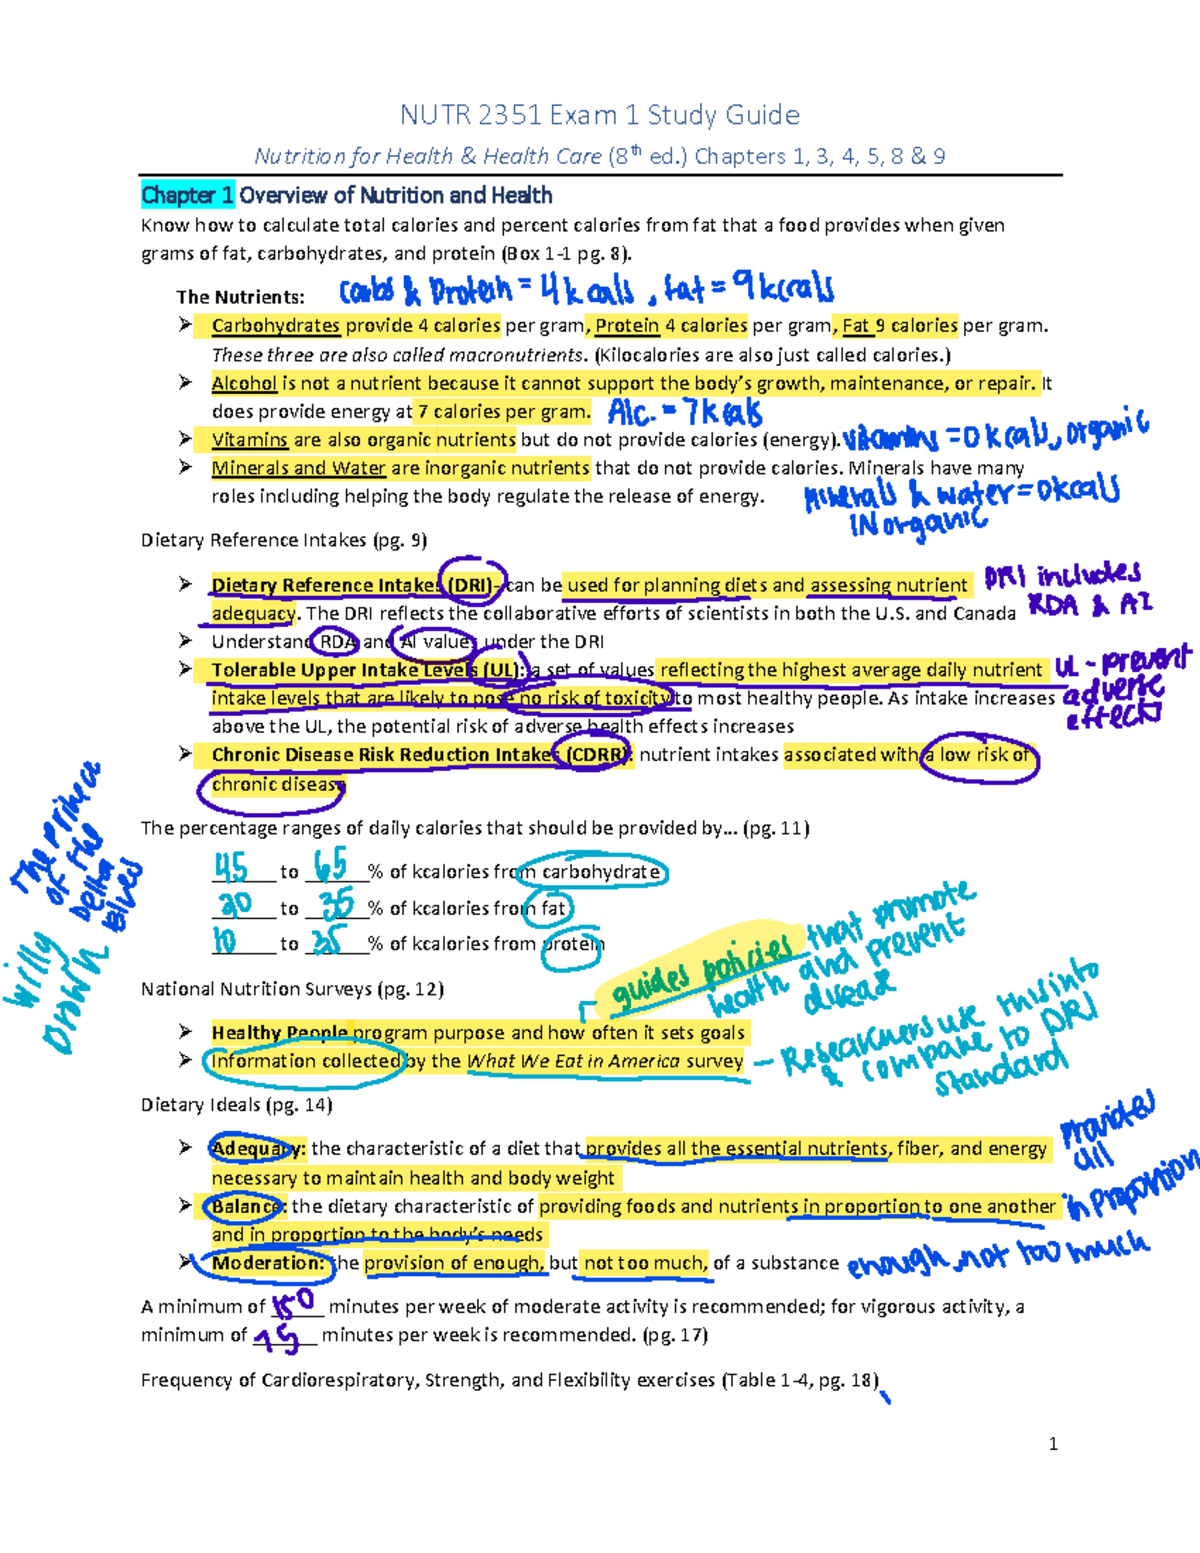 NUTR 2351 Exam 1 Study Guide
Nutrition for Health & Health Care (8th ed.) Chapters 1, 3, 4, 5, 8 & 9
Chapter 1 Overview of Nutrition and Health
Know how to calculate total calories and percent calories from fat that a food provides when given
grams of fat, carbohydrates, and protein (Box 1-1 pg. 8).
The Nutrients: carbs & protein = 4 kcals, fat = 9 kcals
➢ Carbohydrates provide 4 calories per gram, Protein 4 calories per gram, Fat 9 calories per gram.
These three are also called macronutrients. (Kilocalories are also just called calories.)
➢ Alcohol is not a nutrient because it cannot support the body's growth, maintenance, or repair. It
does provide energy at 7 calories per gram. Alc. = 7 kcals
➢ Vitamins are also organic nutrients but do not provide calories (energy). vitamins = 0 kcals, organic
➢ Minerals and Water are inorganic nutrients that do not provide calories. Minerals have many
roles including helping the body regulate the release of energy. minerals & water = 0 kcals
INorganic
Dietary Reference Intakes (pg. 9)
➢ Dietary Reference Intakes (DRI)- can be used for planning diets and assessing nutrient DRI includes
adequacy. The DRI reflects the collaborative efforts of scientists in both the U.S. and Canada RDA & AI
➢ Understand RDA and AI values under the DRI
➢ Tolerable Upper Intake Levels (UL): a set of values reflecting the highest average daily nutrient UL - prevent
intake levels that are likely to pose no risk of toxicity to most healthy people. As intake increases adverse
above the UL, the potential risk of adverse health effects increases effects
➢ Chronic Disease Risk Reduction Intakes (CDRR): nutrient intakes associated with a low risk of
chronic disease
The percentage ranges of daily calories that should be provided by... (pg. 11)
45 to 65 % of kcalories from carbohydrate
20 to 35 % of kcalories from fat
10 to 35 % of kcalories from protein
The
of the
blues
Willy
Drown
guides policies that promote
health and prevent
National Nutrition Surveys (pg. 12)
➢ Healthy People program purpose and how often it sets goals
➢ Information collected by the What We Eat in America survey - Researchers use this info
& compare to DRI
standard
Dietary Ideals (pg. 14)
➢ Adequacy: the characteristic of a diet that provides all the essential nutrients, fiber, and energy provides
all
necessary to maintain health and body weight
➢ Balance: the dietary characteristic of providing foods and nutrients in proportion to one another in proportion
and in proportion to the body's needs
➢ Moderation: the provision of enough, but not too much, of a substance enough, not too much
A minimum of 150 minutes per week of moderate activity is recommended; for vigorous activity, a
minimum of 75 minutes per week is recommended. (pg. 17)
Frequency of Cardiorespiratory, Strength, and Flexibility exercises (Table 1-4, pg. 18)
1